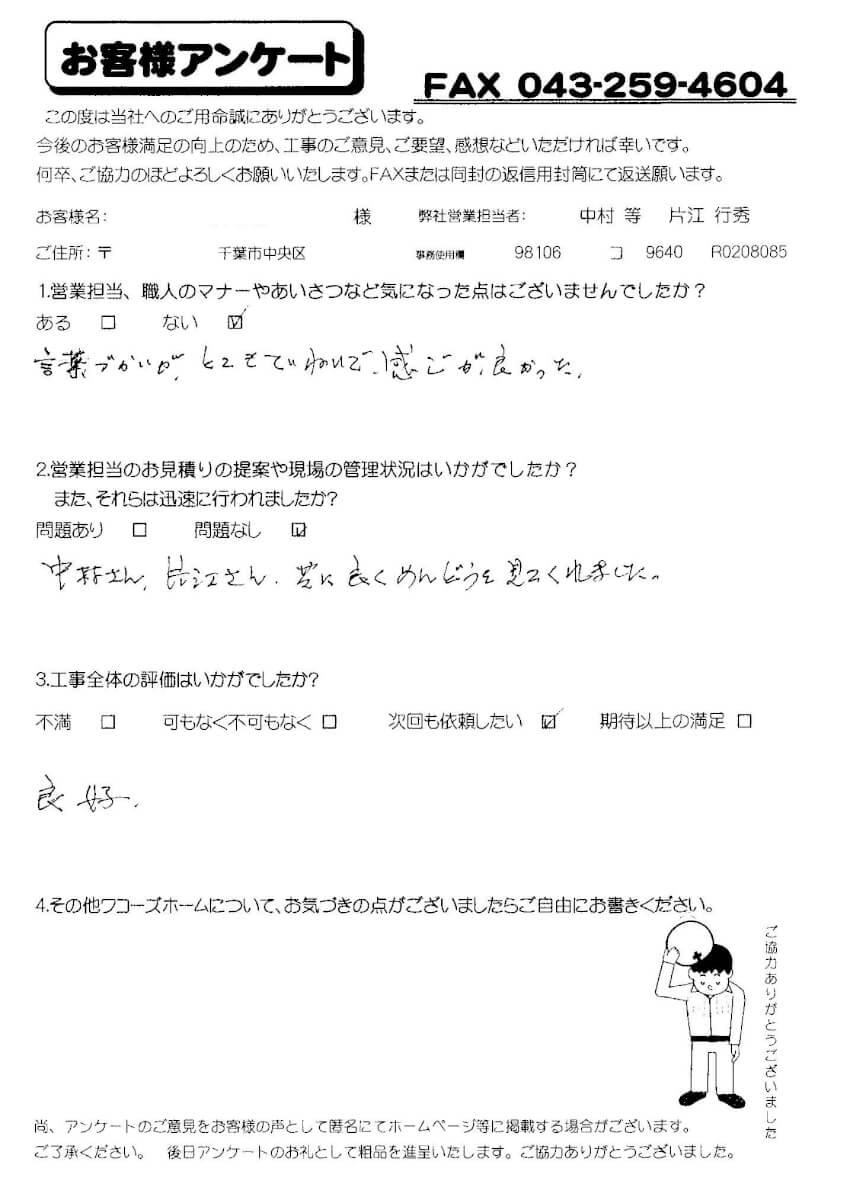 お客様アンケート
FAX 043-259-4604
この度は当社へのご用命誠にありがとうございます。
今後のお客様満足の向上のため、工事のご意見、ご要望、感想などいただければ幸いです。
何卒、ご協力のほどよろしくお願いいたします。FAXまたは同封の返信用封筒にて返送願います。
お客様名: 様 弊社営業担当者: 中村 等 片江 行秀
ご住所:〒 千葉市中央区 事務使用欄 98106 コ 9640 R0208085
1.営業担当、職人のマナーやあいさつなど気になった点はございませんでしたか?
ある □ ない ☑
言葉づかいが、とてもていねいで、感じが良かった。
2.営業担当のお見積りの提案や現場の管理状況はいかがでしたか?
また、それらは迅速に行われましたか?
問題あり □ 問題なし ☑
中村さん、片江さん、共に良くめんどうを見てくれました。
3.工事全体の評価はいかがでしたか?
不満 □ 可もなく不可もなく □ 次回も依頼したい ☑ 期待以上の満足 □
良好.
4.その他ワコーズホームについて、お気づきの点がございましたらご自由にお書きください。
ご協力ありがとうございました
尚、アンケートのご意見をお客様の声として匿名にてホームページ等に掲載する場合がございます。
ご了承ください。 後日アンケートのお礼として粗品を進呈いたします。ご協力ありがとうございました。